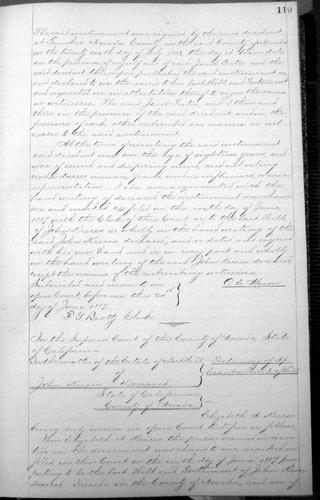 119
The said instrument was signed by the said decedent
at Truckee Nevada County in the said County of Nevada
on the twenty
in the presence of myself and of said Jacob Teeter and the
said decedent thereupon published the said instrument as
and declared to us the same to be his last Will and Testament
and requested us in attestation thereof to sign the same
as witnesses. The said Jacob Teeter, and I then and
there in the presence of the said decedent and in the
presence of each other subscribed our names as wit
nesses to the said instrument.
At the time of executing the said instrument
said decedent was over the age of eighteen years, and
was of sound and disposing mind, and not acting
under duress menace fraud undue influence or mis
representation. I also am acquainted with the
hand writing of deceased the instrument now shown
me and marked filed on the day of June
1897 with the Clerk of this Court as to the last Will
of John Keiser is wholly in the hand writing of the
said John Keiser deceased, and is dated and signed
with his own hand and is in every part and wholly
in the hand writing of the said John Keiser deceased
except the names of the subscribing witnesses.
Subscribed and sworn to in
open Court before me this
day of June 1897
F. G. Beatty Clerk
In the Superior Court of the County of Nevada, State
of California
In the matter of the Estate of last Will
of
John Keiser Deceased
Testimony of Ap
State of California
County of Nevada
Elizabeth A Keiser
being duly sworn in open Court testifies as follows.
I am Elizabeth A Keiser the person named as execu
trix in the document now shown to me marked as
filed in this Court on the day of June 1897 pur
porting to be the last Will and Testament of John Keiser
deceased. I reside in the County of Nevada, and my